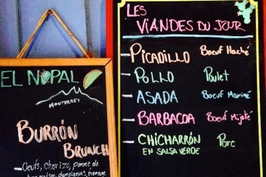 EL NOPAL
MONTERREY
BURRÓN
BRUNCH
Oeufs, chorizo, pomme de
LES
VIANDES DU JOUR
PICADILLO Boeuf Haché
POLLO Poulet
ASADA Boeuf Mariné
BARBACOA Boeuf Mijoté
CHICHARRÓN Porc
EN SALSA VERDE